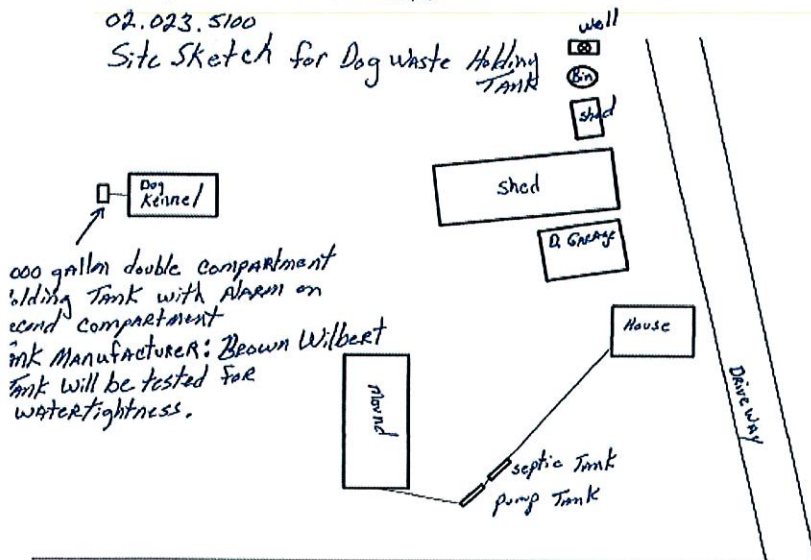 02.023.5100
Site Sketch for Dog Waste Holding
TANK
well
Bin
shed
shed
D. GARAGE
House
DRIVEWAY
Dog
Kennel
000 gallon double compartment
olding Tank with Alarm on
econd compartment
ank Manufacturer: Brown Wilbert
Tank will be tested for
watertightness.
Mound
septic Tank
pump Tank